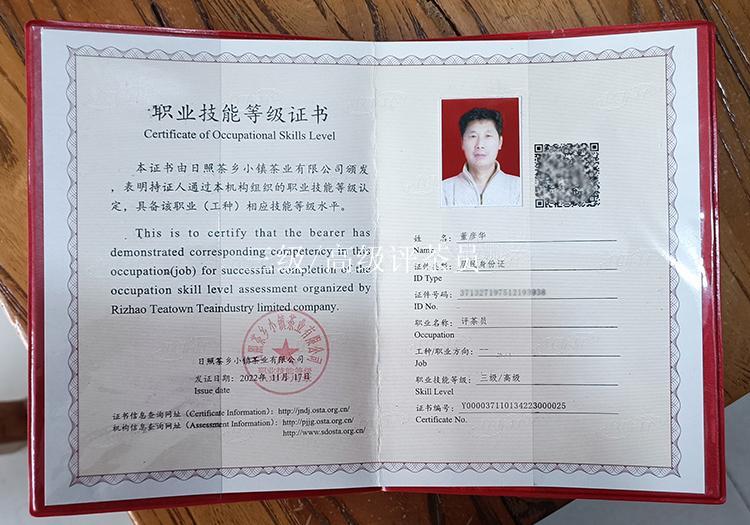 职业技能等级证书
Certificate of Occupational Skills Level
本证书由日照茶乡小镇茶业有限公司颁发
，表明持证人通过本机构组织的职业技能等级认
定，具备该职业（工种）相应技能等级水平。
This is to certify that the bearer has
demonstrated corresponding competency in the
occupation(job) for successful completion of the
occupation skill level assessment organized by
Rizhao Teatown Teaindustry limited company.
三级/高级评茶员
日照茶乡小镇茶业有限公司
职业技能等级
发证日期：2022年 11月 17日
Issue date
证书信息查询网址（Certificate Information）：http://jndj.osta.org.cn/
机构信息查询网址（Assessment Information）：http://pjjg.osta.org.cn/
http://www.sdosta.org.cn/
姓 名：董彦华
Name
证件类型：居民身份证
ID Type
证件号码：
ID No.
职业名称：评茶员
Occupation
工种/职业方向：--
Job
职业技能等级：三级/高级
Skill Level
证书编号：Y000037110134223000025
Certificate No.